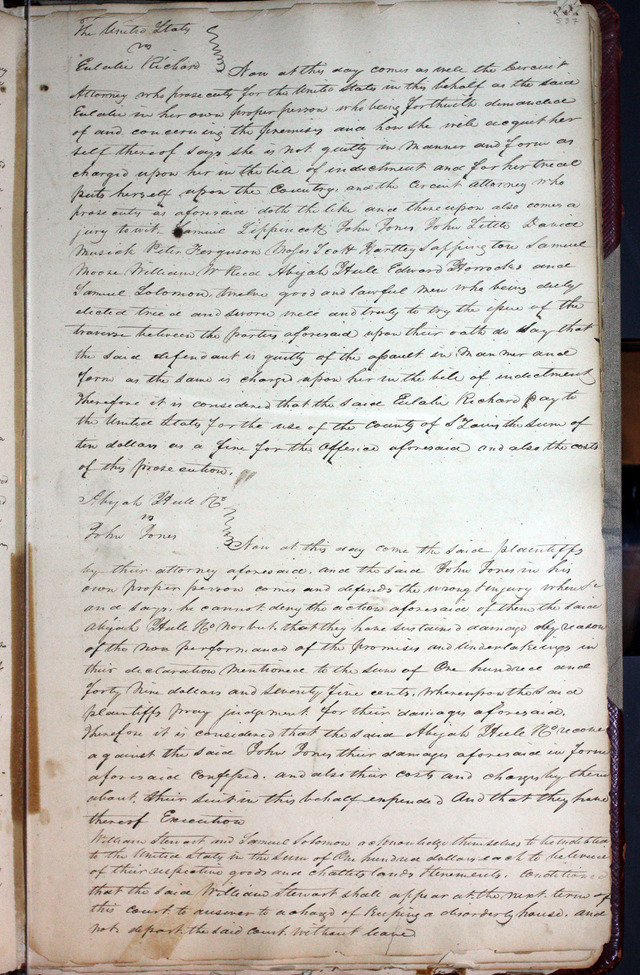 537
The United States
vs
Eulalie Richard
Now at this day comes as well the Circuit
Attorney who prosecutes for the United States in this behalf as the said
Eulalie in her own proper person who being forthwith demanded
of and concerning the premises and how she will acquit her
self thereof says she is not guilty in manner and form as
charged upon her in the bill of indictment and for her trial
puts herself upon the Country, and the Circuit Attorney who
prosecutes as aforesaid doth the like and thereupon also comes a
jury to wit. Samuel Lippincott John Jones John Little David
Musick Peter Ferguson Moses Scott Hartley Sappington Samuel
Moore William W Reed Abijah Hull Edward Horrocks and
Samuel Solomon, twelve good and lawful men who being duly
elected tried and sworn well and truly to try the issue of the
traverse between the parties aforesaid upon their oath do say that
the said defendant is guilty of the assault in manner and
form as the same is charged upon her in the bill of indictment
Therefore it is considered that the said Eulalie Richard pay to
the United States for the use of the County of St Louis the sum of
ten dollars as a fine for the offence aforesaid and also the costs
of this prosecution.
Abijah Hull &Co
vs
John Jones
Now at this day come the said plaintiffs
by their attorney aforesaid, and the said John Jones in his
own proper person comes and defends the wrong & injury when &c
and says, he cannot deny the action aforesaid of them the said
Abijah Hull &Co nor but that they have sustained damage by reason
of the non performance of the promises and undertakings in
their declaration mentioned to the sum of One hundred and
forty Nine dollars and seventy five cents, whereupon the said
plaintiffs pray judgement for their damages aforesaid.
Therefore it is considered that the said Abijah Hull &Co recover
against the said John Jones their damages aforesaid in form
aforesaid confessed, and also their costs and charges by them
about their suit in this behalf expended And that they have
thereof Execution
William Stewart and Samuel Solomon acknowledge themselves to be indebted
to the United States in the sum of One hundred dollars each to be levied
of their respective goods and chattels lands & tenements. Conditioned
that the said William Stewart shall appear at the next term of
this Court to answer to a charge of keeping a disorderly house. and
not depart the said court without leave